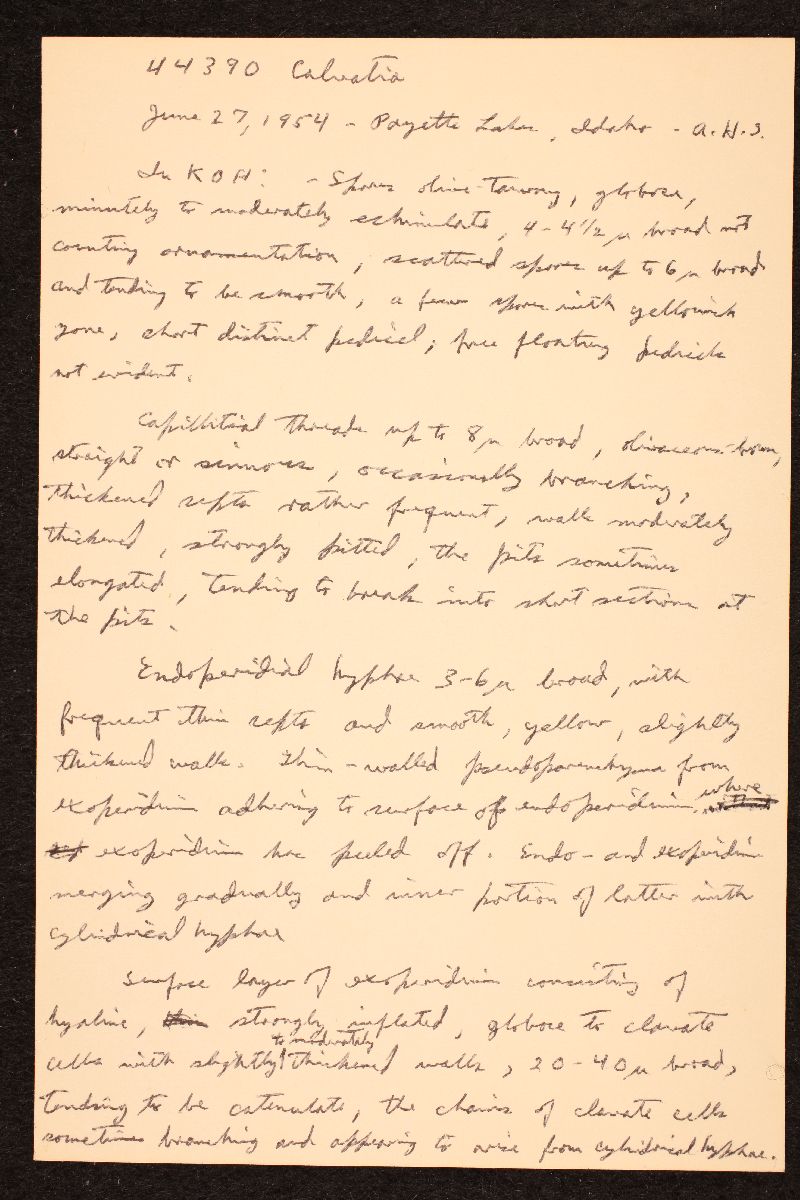 44390 Calvatia
June 27, 1954 - Payette Lakes, Idaho - A.H.S.
In KOH: - Spores olive-tawny, globose,
minutely to moderately echinulate, 4-4 1/2 μ broad not
counting ornamentation, scattered spores up to 6 μ broad
and tending to be smooth, a few spores with yellowish
zone, short distinct pedicel; free floating pedicels
not evident.
Capillitial threads up to 8 μ broad, olivaceous-brown,
straight or sinuous, occasionally branching,
thickened septa rather frequent, walls moderately
thickened, strongly pitted, the pits sometimes
elongated, tending to break into short sections at
the pits.
Endoperidial hyphae 3-6 μ broad, with
frequent thin septa and smooth, yellow, slightly
thickened walls. Thin-walled pseudoparenchyma from
exoperidium adhering to surface of endoperidium where
exoperidium has peeled off. Endo- and exoperidium
merging gradually and inner portion of latter with
cylindrical hyphae
Surface layer of exoperidium consisting of
hyaline, strongly inflated, globose to clavate
cells with slightly to moderately thickened walls, 20-40 μ broad,
tending to be catenulate, the chains of clavate cells
sometimes branching and appearing to arise from cylindrical hyphae.